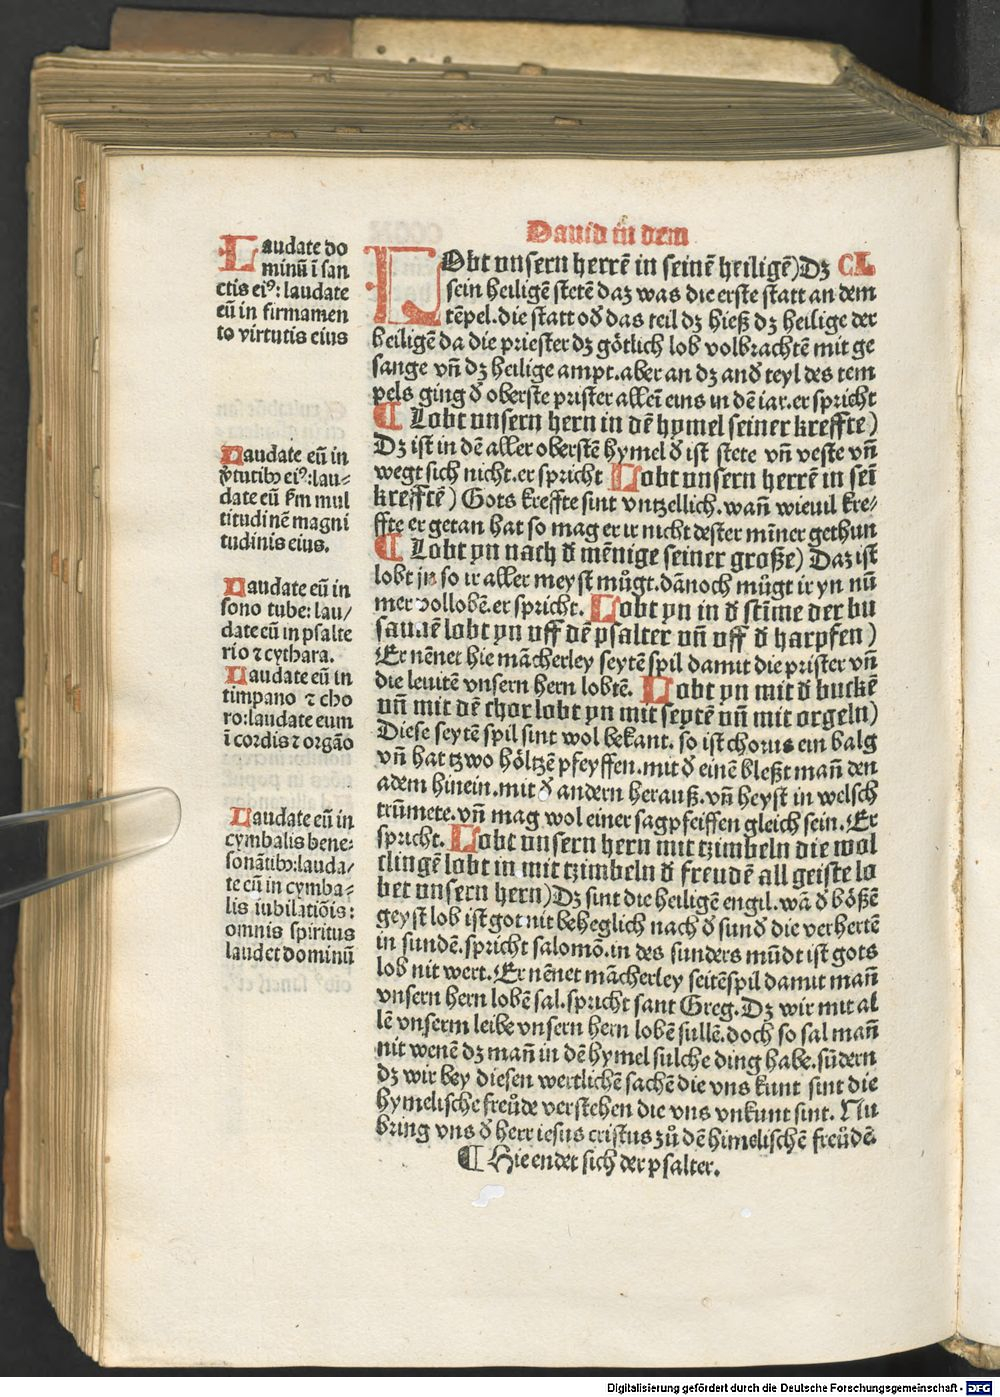 Dauid in dem
Laudate do
minū ī san
ctis eiꝰ: laudate
eū in firmamen
to virtutis eius
Laudate eū in
ꝟtutibꝫ eiꝰ: lau-
date eū ẜm mul
titudinē magni
tudinis eius.
Laudate eū in
sono tube: lau/
date eū in psalte
rio ⁊ cythara.
Laudate eū in
timpano ⁊ cho
ro: laudate eum
ī cordis ⁊ orgāo
Laudate eū in
cymbalis bene-
sonātibꝫ: lauda/
te eū in cymba-
lis iubilatiōis:
omnis spiritus
laudet dominū
LObt vnsern herrē in seinē heiligē) Dꝫ CL
sein heiligē stetē daꝫ was die erste statt an dem
tēpel. die statt ođ das teil dꝫ hieß dꝫ heilige der
heiligē da die priester dꝫ götlich lob volbrachtē mit ge
sange vn̄ dꝫ heilige ampt. aber an dꝫ anđ teyl des tem
pels ging đ oberste prister alleī eins in dē iar. er spricht
¶ Lobt vnsern hern in dē hymel seiner kreffte)
Dꝫ ist in dē aller oberstē hymel đ ist stete vn̄ veste vn̄
wegt sich nicht. er spricht Lobt vnsern herrē in seī
krefftē) Gots kreffte sint vntzellich. wan̄ wieuil kre/
ffte er getan hat so mag er ir nicht dester mīner gethun
¶ Lobt yn nach đ mēnige seiner große) Daz ist
lobt jn so ir aller meyst můgt. dānoch můgt ir yn nū
mer volloben. er spricht. Lobt yn in đ stīme der bu
saunē lobt yn vff dē psalter vn̄ vff đ harpfen)
Er nēnet hie mācherley seytē spil damit die prister vn̄
die leuitē vnsern hern lobtē. Lobt yn mit đ buckē
vn̄ mit dē chor lobt yn mit seytē vn̄ mit orgeln)
Diese seytē spil sint wol bekant. so ist chorus ein balg
vn̄ hat tzwo höltzē pfeyffen. mit đ einē bleßt man̄ den
adem hinein. mit đ andern herauß. vn̄ heyst in welsch
trūmete. vn̄ mag wol einer sagpfeiffen gleich sein. Er
spricht. Lobt vnsern hern mit tzimbeln die wol
clingē lobt in mit tzimbeln đ freudē all geiste lo
bet vnsern hern) Dꝫ sint die heiligē engil. wā đ bößē
geyst lob ist got nit beheglich nach đ sunđ die verhertē
in sundē. spricht salomō. in des sunders mūdt ist gots
lob nit wert. Er nēnet mācherley seitēspil damit man̄
vnsern hern lobē sal. spricht sant Greg. Dꝫ wir mit al
lē vnserm leibe vnsern hern lobē sullē. doch so sal man̄
nit wenē dꝫ man̄ in dē hymel sulche ding habe. sūdern
dꝫ wir bey diesen wertlichē sachē die vns kunt sint die
hymelische freůde verstehen die vns vnkunt sint. Nu
bring vns đ herr iesus cristus zů dē himelischē freůdē.
¶ Hie endet sich der psalter.
Digitalisierung gefördert durch die Deutsche Forschungsgemeinschaft - DFG